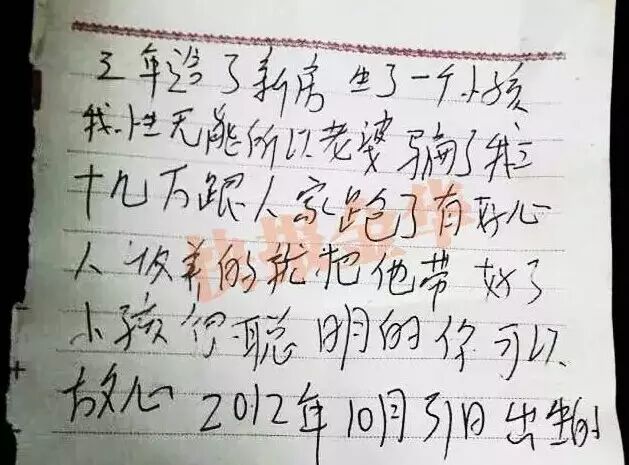 三年造了新房 生了一个小孩
我性无能所以老婆骗了我三
十几万跟人家跑了有好心
人收养的就把他带好了
小孩很聪明的你可以
放心 2012年10月31日出生的